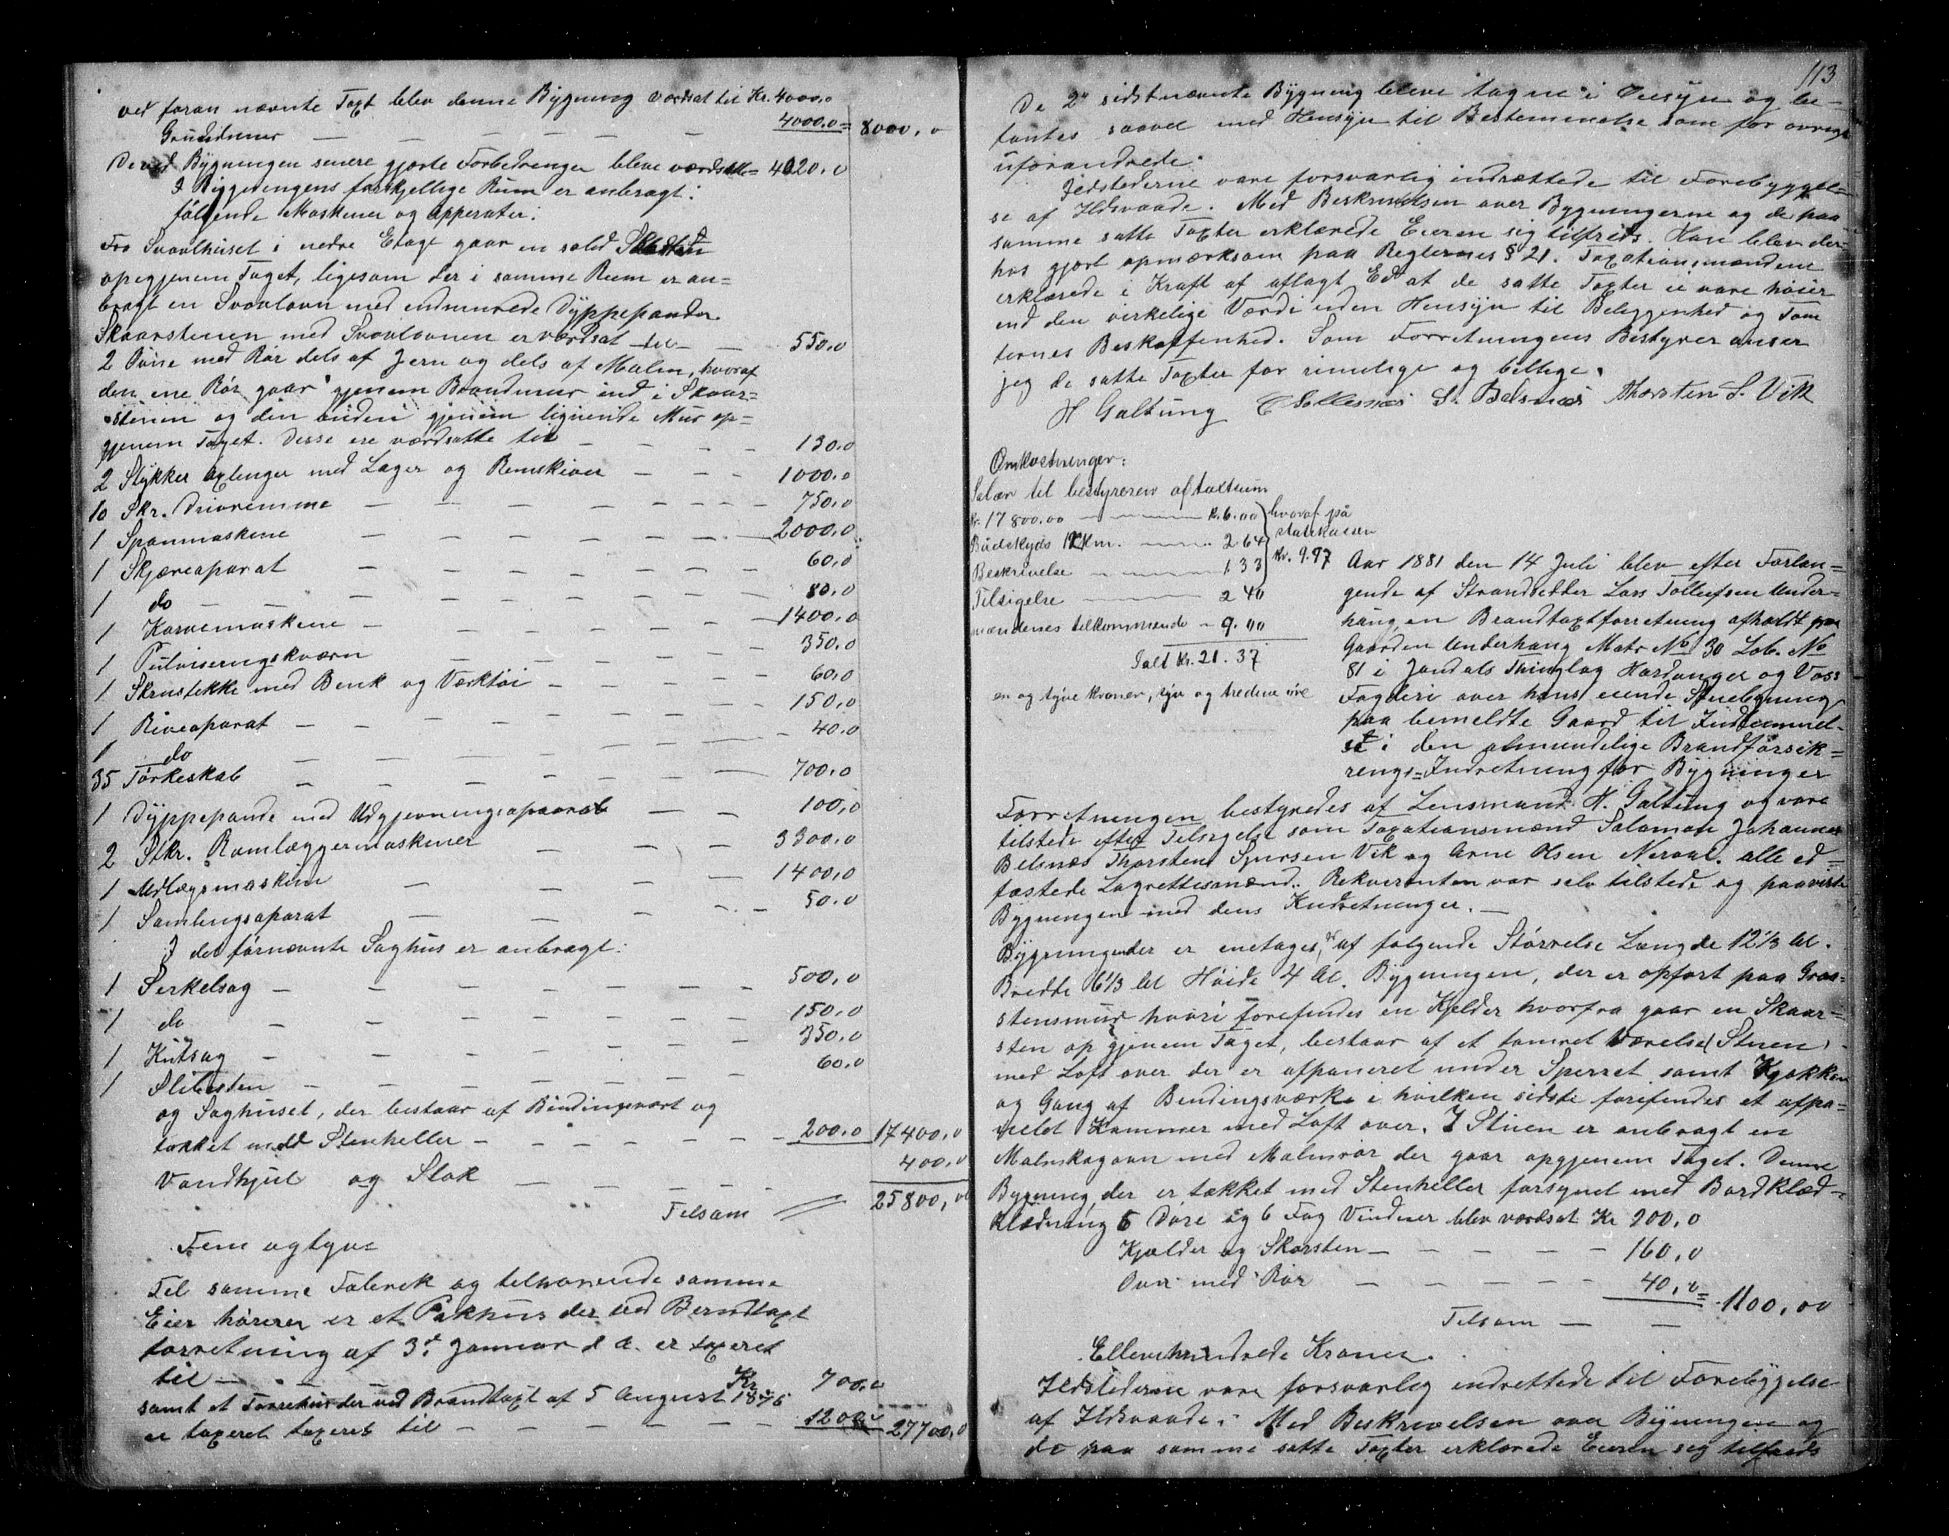 ved foran nævnte Taxt blev denne Bygning værdsat til Kr. 4000,0
Grundmur — — — — — 4000,0 = 8000,0
De ved Bygningen senere gjorte Forbedringer bleve værdsatte = 4020,0
I Byggningens forskjellige Rum er anbragt:
følgende Maskener og apperater:
Fra Svovlhuset i nedre Etage gaar en solid
op igjenem Taget, ligesom der i samme Rum er an=
bragt en Svovlovn med indmurede Dyppepander.
Skaarstenen med Svovlovnen er værdsat til — — 550,0
2 Ovne med Rør dels af Jern og dels af Malm, hvoraf
den ene Rør gaar gjenem Brandmur ind i Skaar=
stenen og den anden gjenem lignende Mur op=
gjenem Taget. Disse ere værdsatte til — — — 130,0
2 Stykker Axlinger med Lager og Remskiver — — 1000,0
10 Stk. Drivremme — — — — — 750,0
1 Spanmaskene — — — — — 2000,0
1 Skjæreaparat — — — — — 60,0
1 do — — — — — 80,0
1 Karvemaskene — — — — — 1400,0
1 Pulviseringskværn — — — — 350,0
1 Skrustekke med Benk og Værktøi — — — 60,0
1 Riveaparat — — — — — 150,0
1 do — — — — — 40,0
35 Tørkeskab — — — — — 700,0
1 Dyppepande med Udgjevningsaparat — — 100,0
2 Stkr. Ramlæggermaskener — — — 3300,0
1 Udlægsmaskine — — — — 1400,0
1 Samlingsaparat — — — — 50,0
I det førnævnte Saghus er anbragt:
1 Serkelsag — — — — — 500,0
1 do — — — — — 150,0
1 Kutsag — — — — — 350,0
1 Slibesten — — — — — 60,0
og Saghuset, der bestaar af Bindingsværk og
tækket med Stenheller — — — — 200,0 17400,0
Vandhjul og Stok — — — — 400,0
Tilsam 25800,00
Fem og tyve
Til samme Fabrik og tilhørende samme
Eier hører er et Pakhus der ved Brandtaxt
forretning af 3d Januar d. A. er taxeret
til — — — Kr 700,0
samt et Tørrehus der ved Brandtaxt af 5 August 1876
er taxeret taxeret til — — — — 1200,0 27700,0
113
De 2de sidstnævnte Bygning bleve tagne i Øiesyn og be=
fantes saavel med Hensyn til Bestemmelse som for øvrigt
uforandrede.
Ildstederne vare forsvarlig indrættede til Forebyggel=
se af Ildsvaade. Med Beskrivelsen over Bygningerne og de paa
samme satte Taxter erklærede Eieren sig tilfreds. Han blev der=
hos gjort opmærksom paa Reglernes § 21. Taxationsmændene
erklærede i Kraft af aflagt Ed at de satte Taxter ei vare høier
end den virkelige Værdi uden Hensyn til Beleggenhed og Tom
ternes Beskaffenhed. Som Forretningens Bestyrer anser
jeg de satte Taxter for rimelige og bellige.
H Galtung S. Belsnes Thorsten S. Vik
Omkostninger:
Salær til bestyreren af taxtsum
Kr. 17800.00 — — Kr. 6.00 hvoraf på
Budskyds 12 Km. — 2 64 statskassen
Beskrivelse — 1 33 Kr. 9.97
Tilsigelse — 2 40
mændenes tilkommende — 9.00
Ialt Kr. 21.37
en og tyve kroner, syv og tredeve øre
Aar 1881 den 14 Juli blev efter Forlan=
gende af Strandsidder Lars Tollefsen Under=
haug, en Brandtaxtforretning afholdt paa
Gaarden Underhaug Matr No 30 Løb. No
81 i Jondals Thinglag Hardanger og Voss
Fogderi over hans eiende Stuebygning
paa bemeldte Gaard til Indlemmel=
se i den almindelige Brandforsik=
rings=Indretning for Bygninger
Forretningen bestyredes af Lensmand H. Galtung og vare
tilstede efter Tilsigelse som Taxationsmænd Salamon Johannes
Belsnes Thorsten Sjursen Vik og Arne Olsen alle ed=
fæstede Lagrettesmænd. Rekverenten var selv tilstede og paaviste
Bygningen med dens Indretninger. —
Bygningen der er enetages, er af følgende Størrelse Længde 12 1/3 al.
Bredte 16 1/3 al Høide 4 al. Bygningen, der er opført paa Graa=
stensmur hvori forefindes en Kjelder hvorfra gaar en Skaar=
sten op gjenem Taget, bestaar af et tømret Værelse (Stuen)
med Loft over der er afpaneret under Sperret samt Kjøkken
og Gang af Bindingsværk i hvilken sidste forefindes et afpa=
nelet Kammer med Loft over. I Stuen er anbragt en
Malmkagovn med Malmrør der gaar op gjenem Taget. Denne
Bygning der er tækket med Stenheller forsynet med Bordklæd=
klædning 5 Døre og 6 Fag Vinduer blev værdsat Kr 900,0
Kjælder og Skorsten — — — — 160,0
Ovn med Rør — — — — 40,0 = 1100,00
Tilsam — —
Ellevehundrede Kroner.
Ildstederne vare forsvarlig indrettede til Forebyggelse
af Ildsvaade. Med Beskrivelsen over Bygningen og
de paa samme satte Taxter erklærede Eieren sig tilfreds